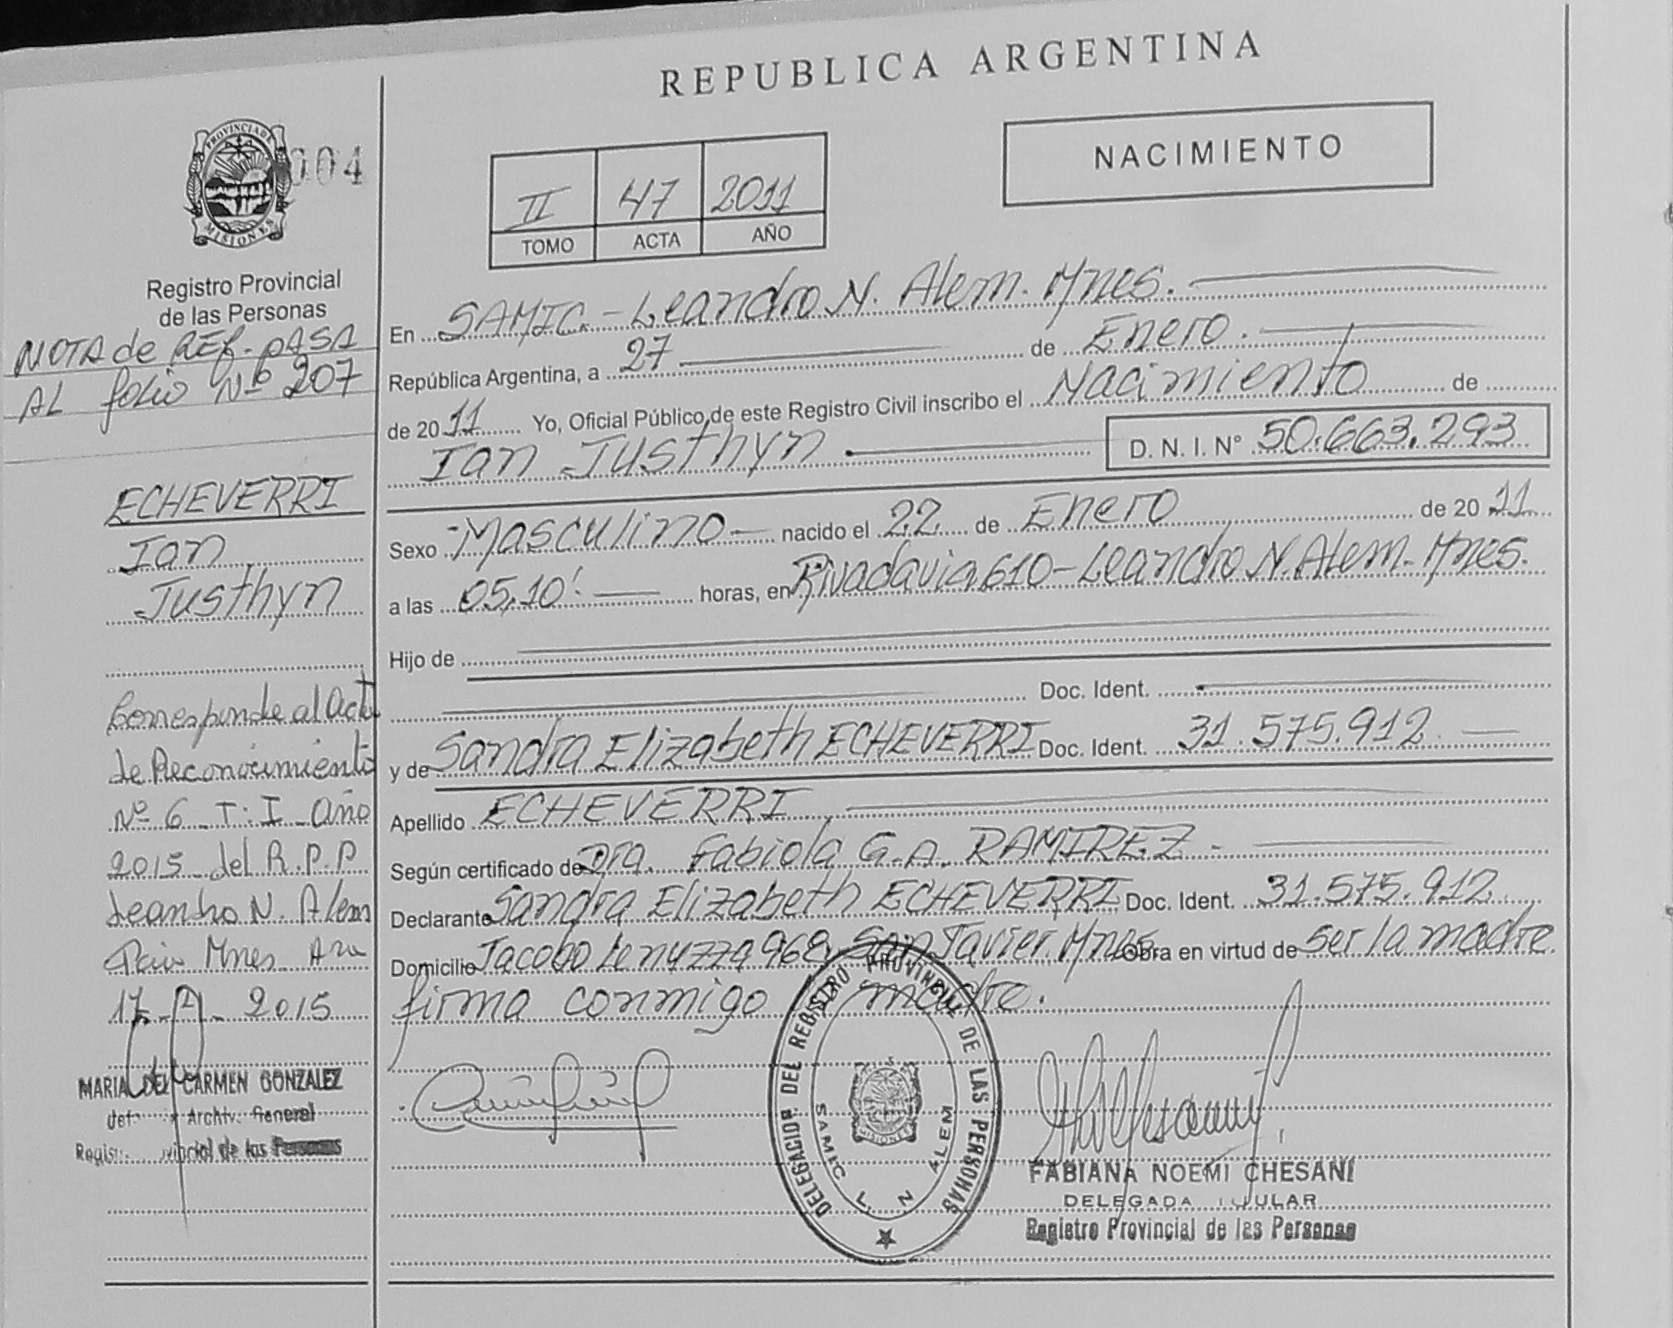 REPUBLICA ARGENTINA
PROVINCIA DE MISIONES
004
Registro Provincial
de las Personas
NOTA de REF. PASA
AL folio Nº 207
ECHEVERRI
Ian
Justhyn
Corresponde al Acta
de Reconocimiento
Nº 6 T: I Año
2015 del R.P.P.
Leandro N. Alem
Mnes
2015
MARIA DEL CARMEN GONZALEZ
Archiv. General
de las Personas
II 47 2011
TOMO ACTA AÑO
NACIMIENTO
En SAMIC - Leandro N. Alem. Mnes.
República Argentina, a 27 de Enero.
de 2011 Yo, Oficial Público de este Registro Civil inscribo el Nacimiento de
Ian Justhyn D. N. I. N° 50.663.293
Sexo Masculino nacido el 22 de Enero de 2011
a las 05,10' horas, en Rivadavia 610 - Leandro N. Alem. Mnes.
Hijo de
Doc. Ident.
y de Sandra Elizabeth ECHEVERRI Doc. Ident. 31.575.912
Apellido ECHEVERRI
Según certificado de Dra. Fabiola G.A. RAMIREZ.
Declarante Sandra Elizabeth ECHEVERRI Doc. Ident. 31.575.912
Domicilio Jacobo 968, San Javier. Mnes. Obra en virtud de ser la madre.
firma conmigo la madre.
DELEGACION DEL REGISTRO PROVINCIAL DE LAS PERSONAS
SAMIC L. N ALEM
MISIONES
FABIANA NOEMI CHESANI
DELEGADA TITULAR
Registro Provincial de las Personas